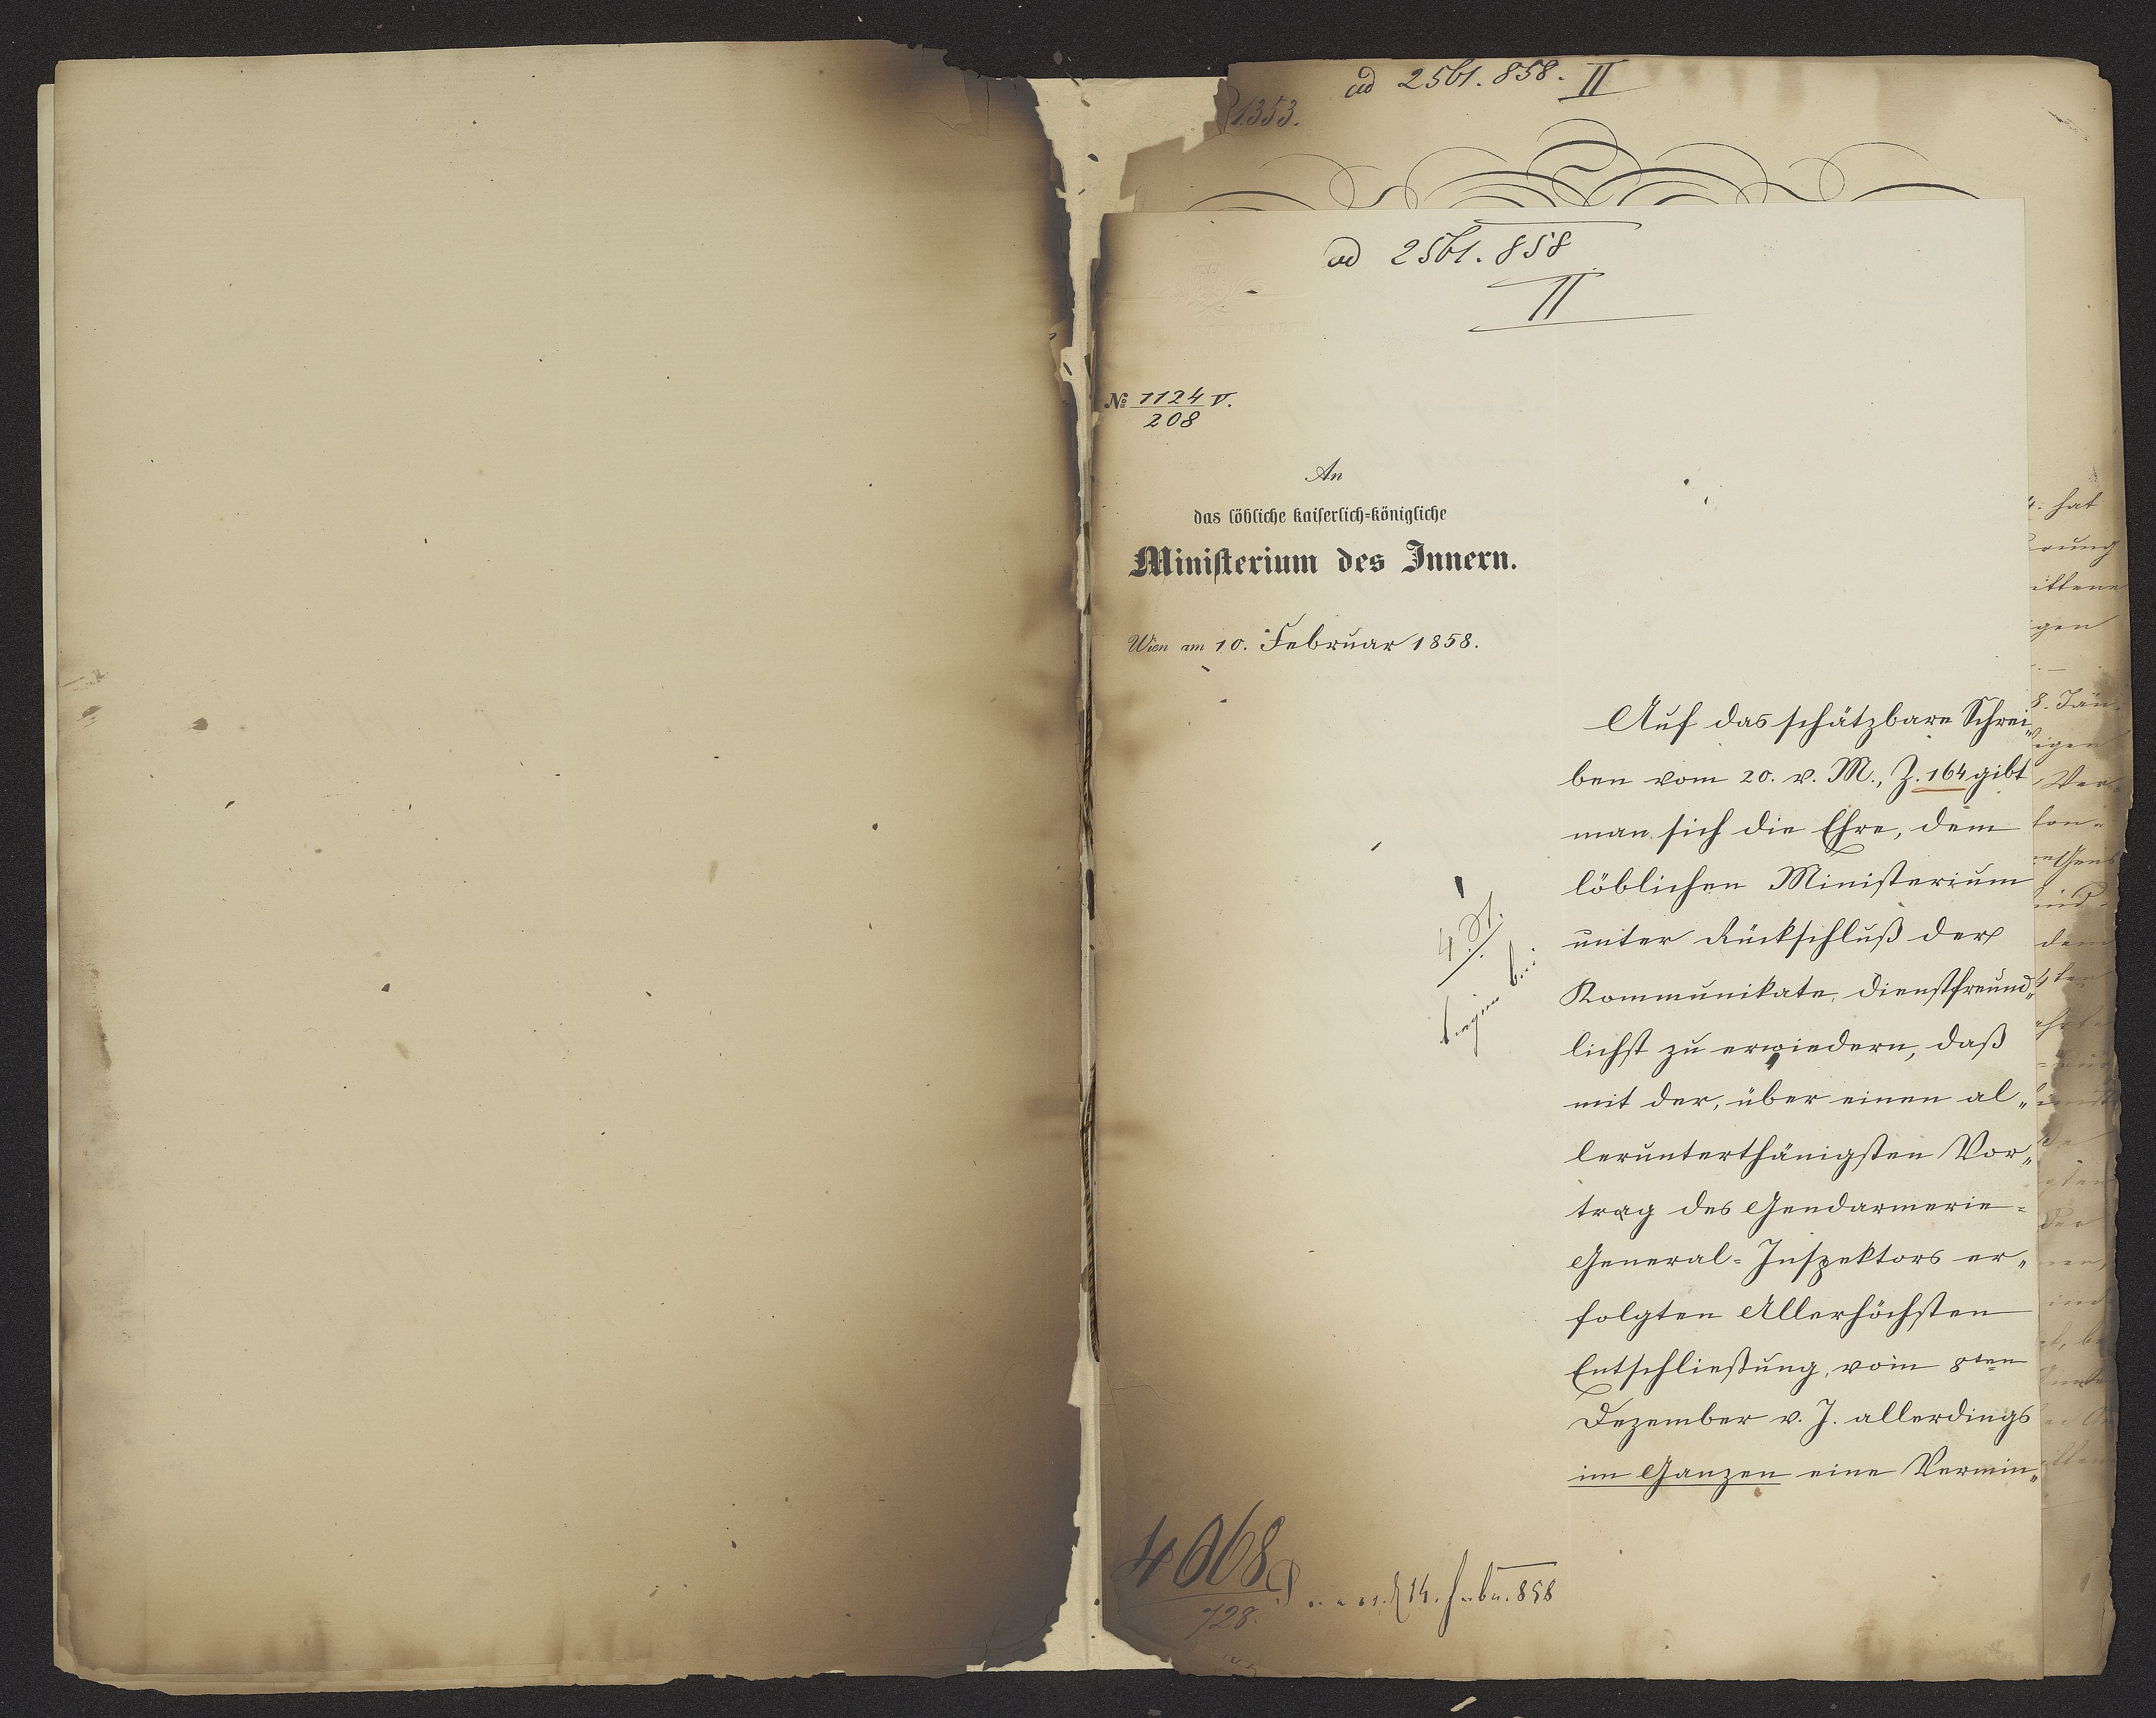 ad 2561. 858. II
1353.
ad 2561. 858
II
№ 1124 V.
208
An
das löbliche kaiserlich-königliche
Ministerium des Innern.
Wien am 10. Februar 1858.
Auf das schätzbare Schrei„
ben vom 20. v. M., Z. 164 gibt
man sich die Ehre, dem
löblichen Ministerium
unter Rückschluß der
Kommunikate, dienstfreund„
lichst zu erwiedern, daß
mit der, über einen al„
lerunterthänigsten Vor„
trag des Gendarmerie=
General=Inspektors er„
folgten Allerhöchsten
Entschließung, vom 8ten
Dezember v. J. allerdings
im Ganzen eine Vermin„
4068
728.
14. Febr. 858
4. hat
rung
ittene
gen
8. Jän
igen
Ver
kon=
dem